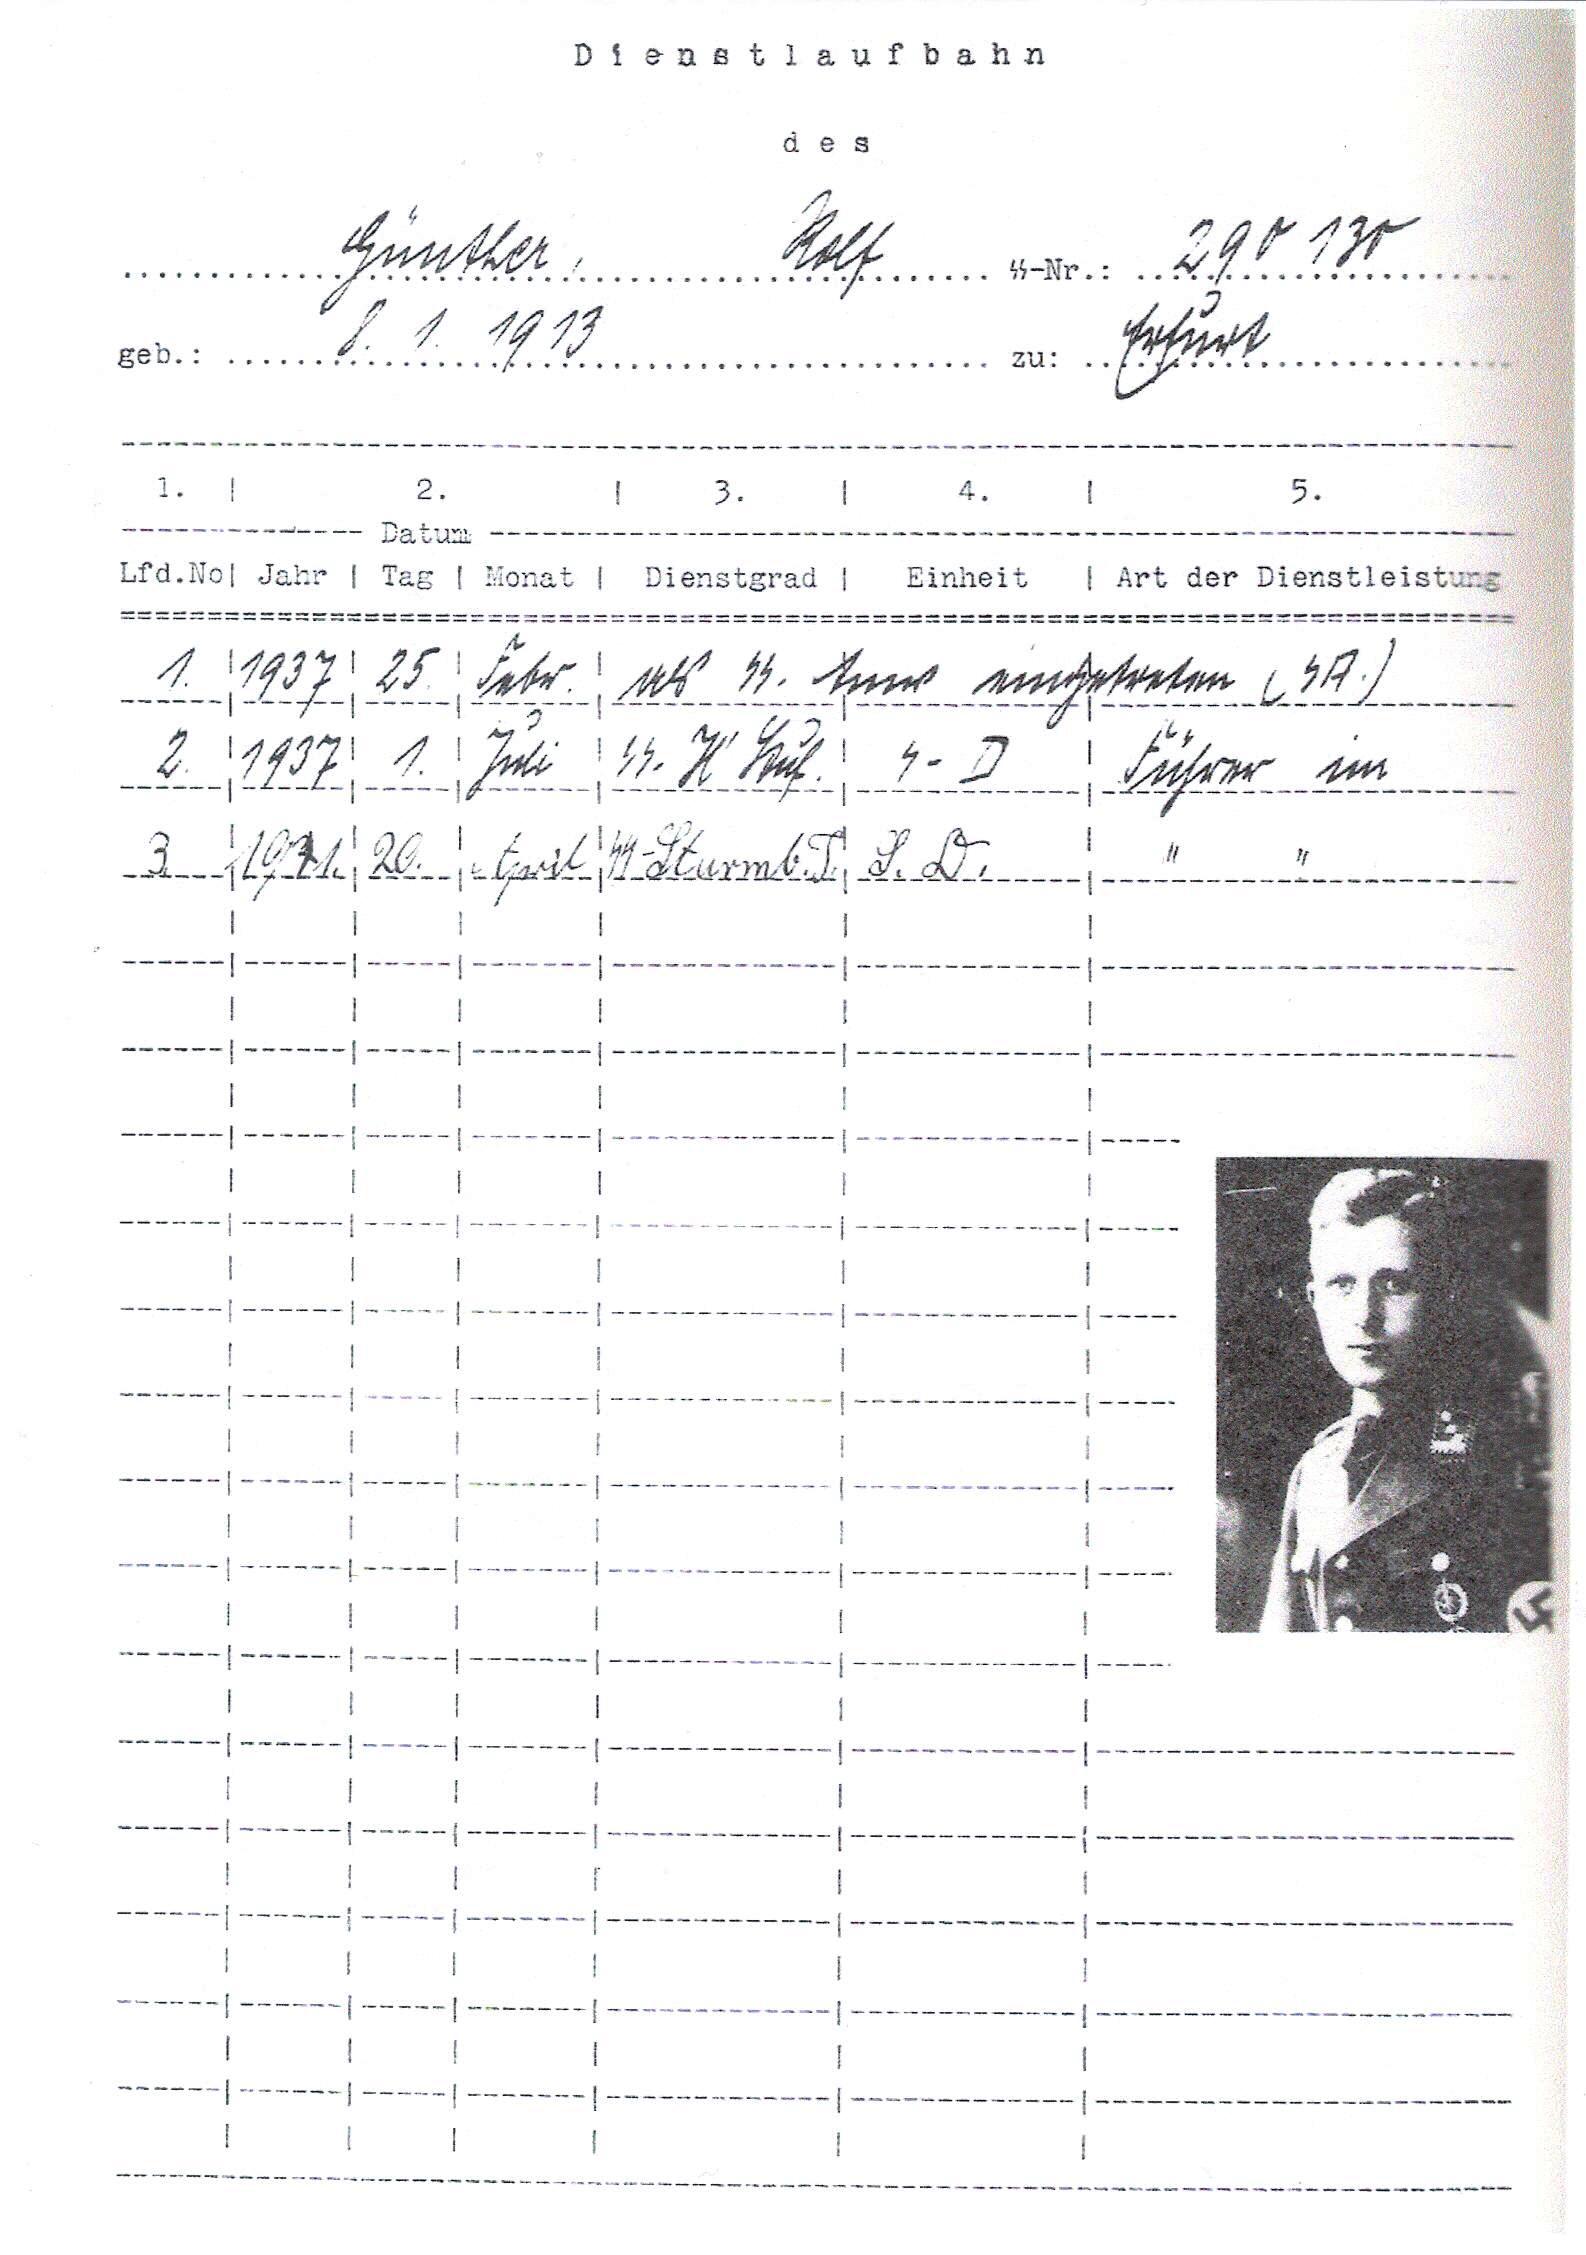 Dienstlaufbahn
des
Günther, Rolf ᛋᛋ-Nr.: 290 130
geb.: 8. 1. 1913 zu: Erfurt
1. | 2. | 3. | 4. | 5.
Datum
Lfd.No| Jahr | Tag | Monat | Dienstgrad | Einheit | Art der Dienstleistung
1. | 1937 | 25. | Febr. | als ᛋᛋ. Anw eingetreten (SA.)
2. | 1937 | 1. | Juli | ᛋᛋ. H'Stuf. | S-D | Führer im
3. | 1941. | 20. | April | ᛋᛋ-Sturmb.F. | S. D. | " "